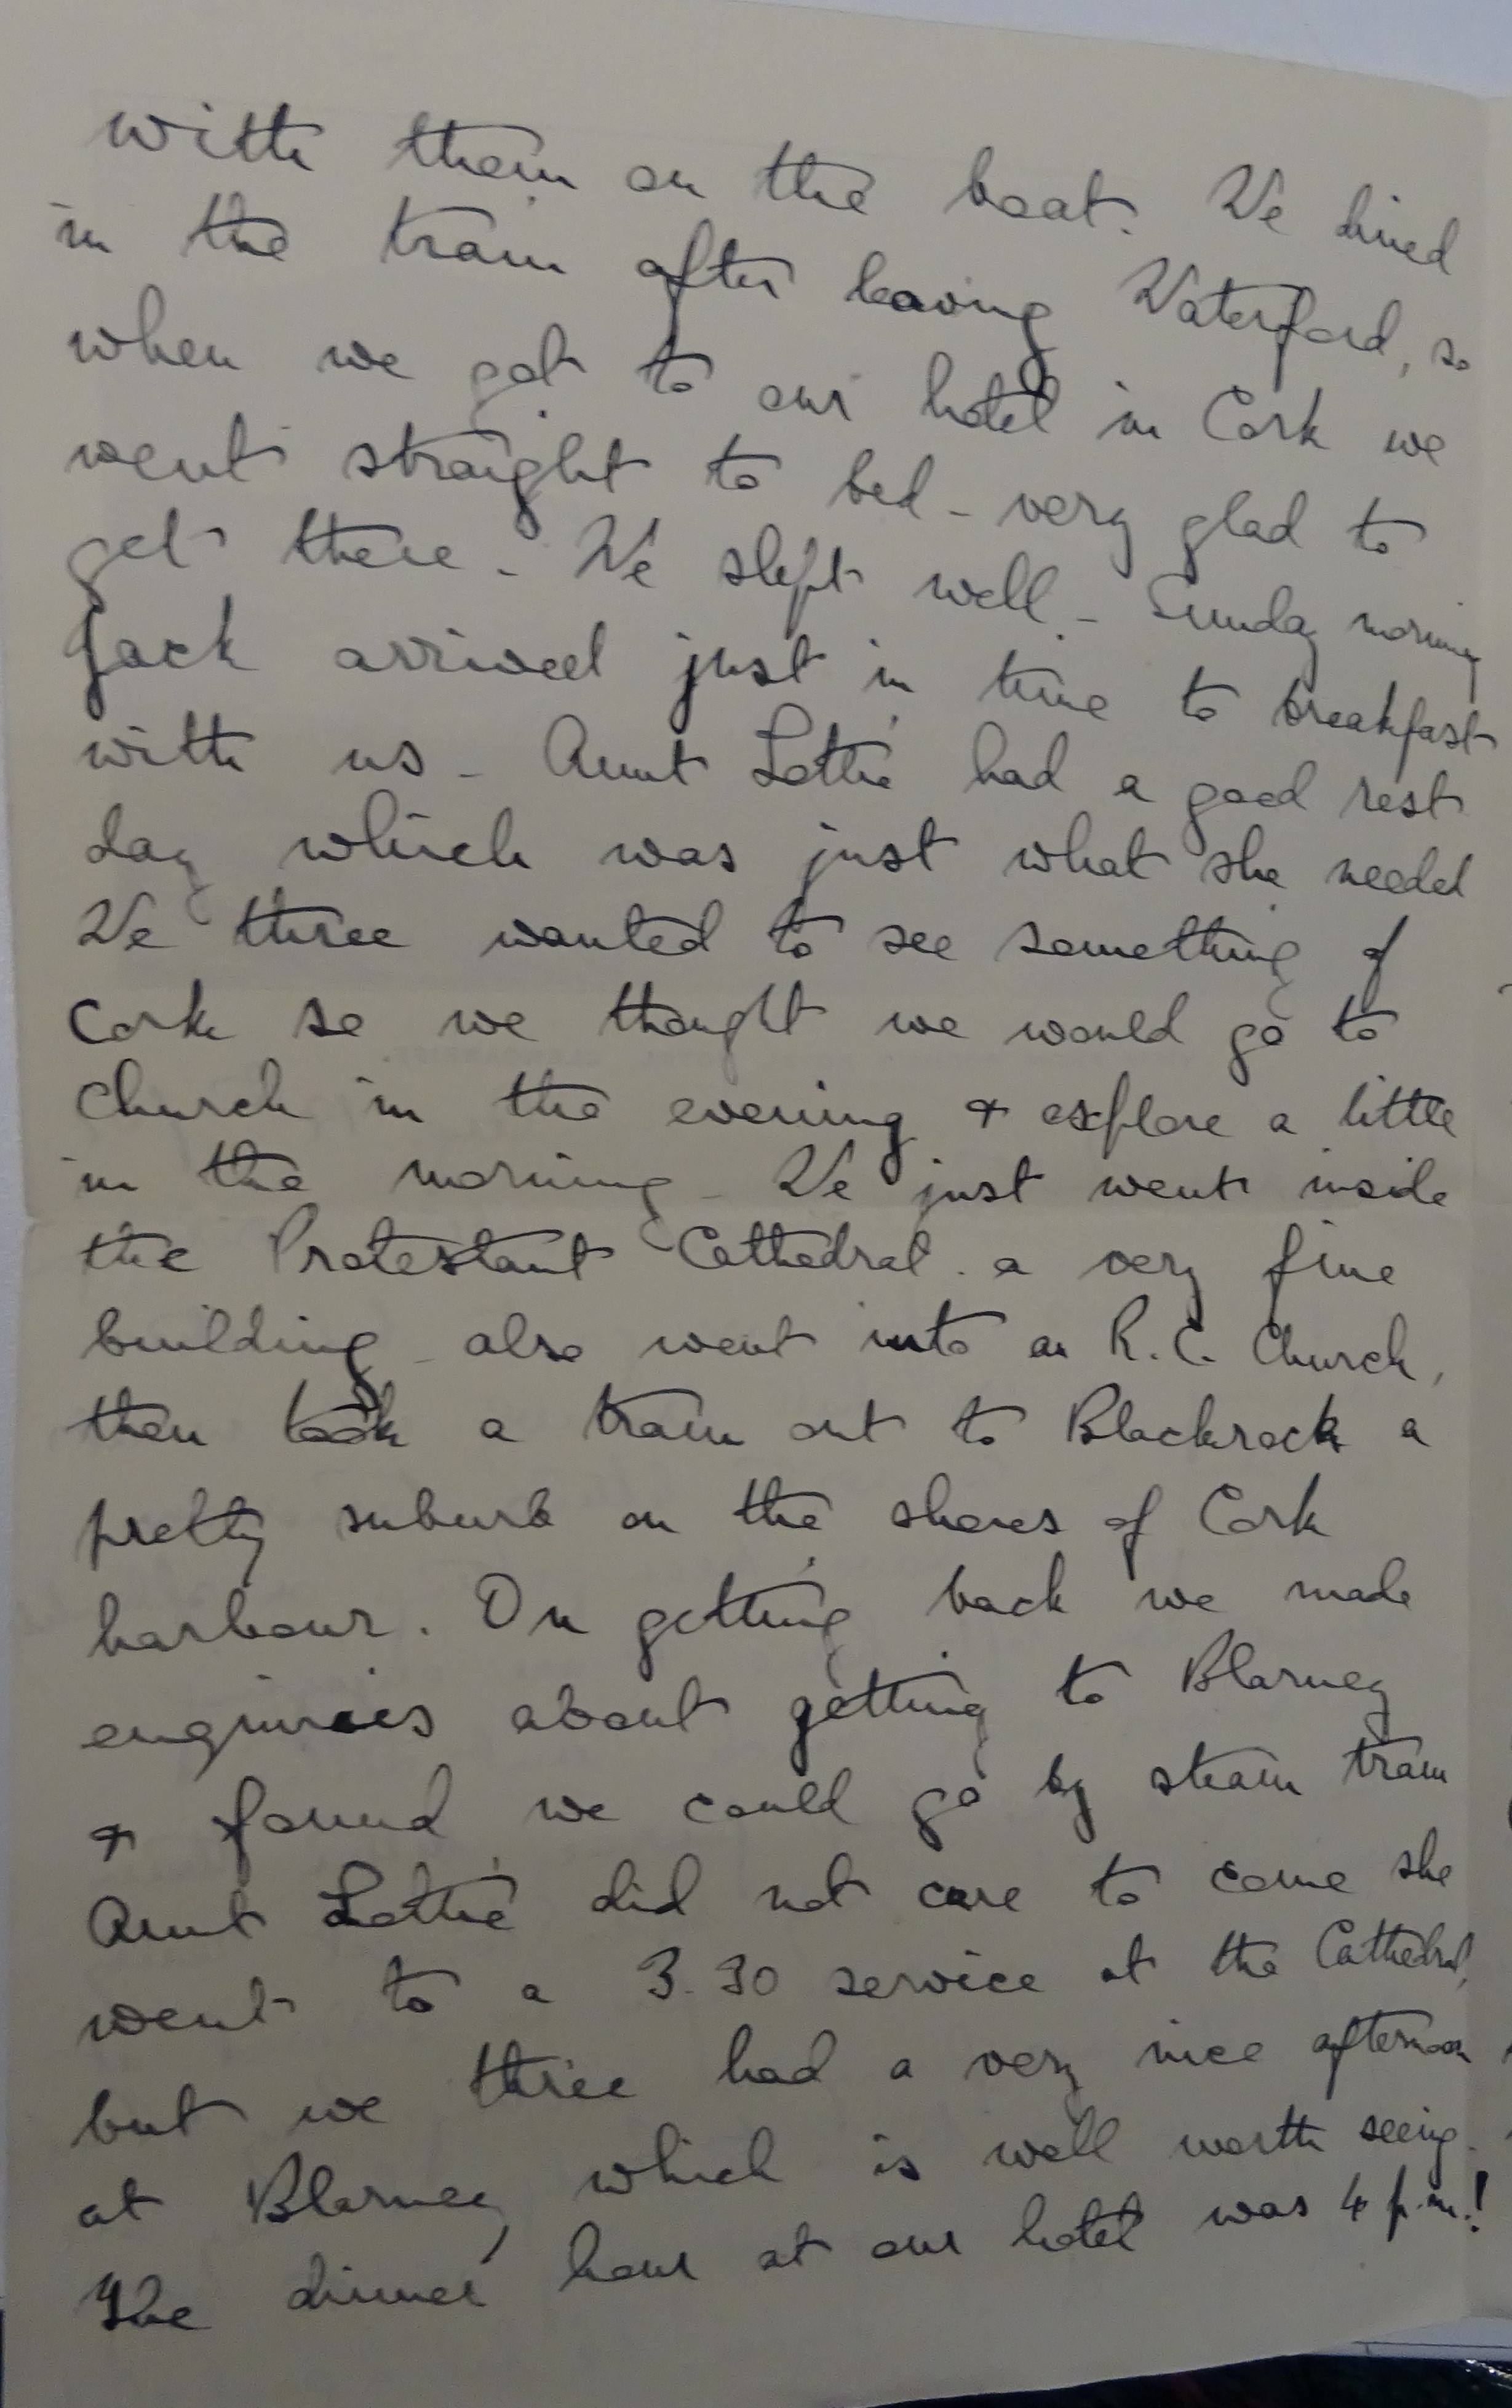 with them on the boat. We dined
in the train after leaving Waterford, so
when we got to our hotel in Cork we
went straight to bed - very glad to
get there - We slept well - Sunday morning
Jack arrived just in time to breakfast
with us - Aunt Lottie had a good rest
day which was just what she needed
We three wanted to see something of
Cork so we thought we would go to
Church in the evening & explore a little
in the morning - We just went inside
the Protestant Cathedral. a very fine
building - also went into an R.C. Church,
then took a tram out to Blackrock a
pretty suburb on the shores of Cork
harbour. On getting back we made
enquiries about getting to Blarney
& found we could go by steam tram
Aunt Lottie did not care to come she
went to a 3.30 service at the Cathedral,
but we three had a very nice afternoon
at Blarney which is well worth seeing.
The dinner hour at our hotel was 4 p.m.!